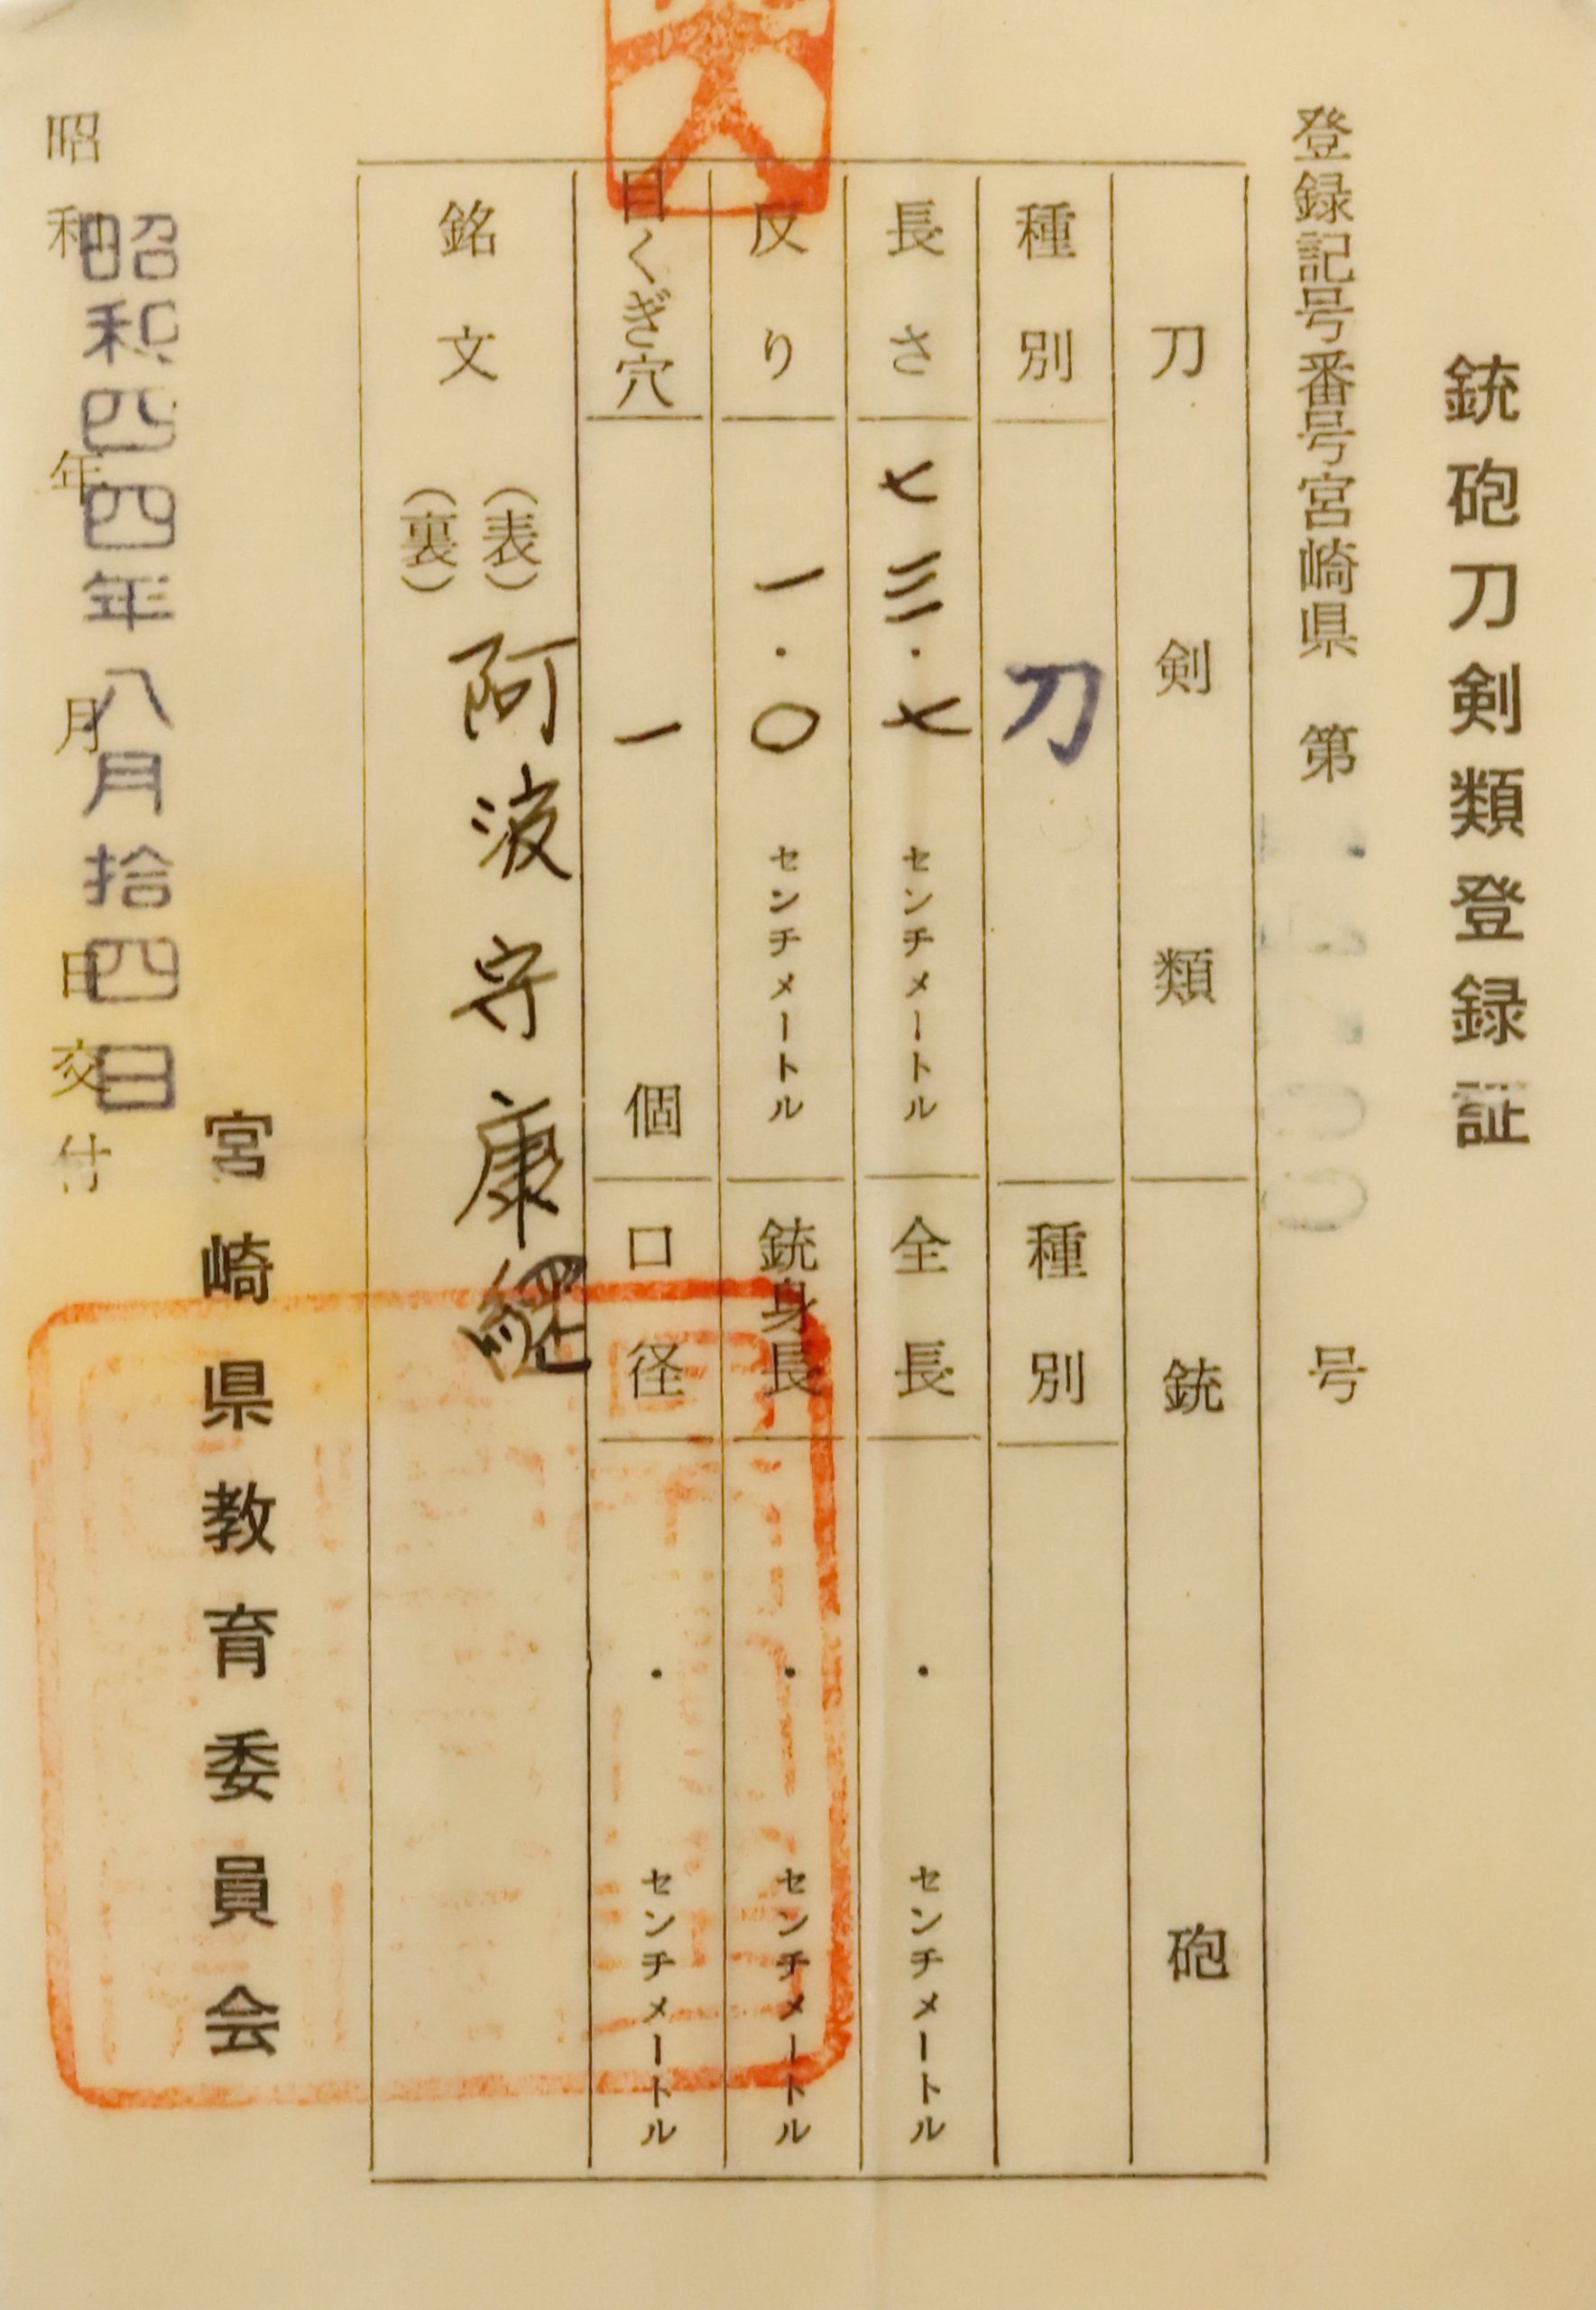 銃砲刀剣類登録証
登録記号番号宮崎県 第 号
刀剣類
銃砲
種別 刀
種別
長さ 七三.七 センチメートル
全長 . センチメートル
反り 一.〇 センチメートル
銃身長 . センチメートル
目くぎ穴 一 個
口径 . センチメートル
銘文 (表) 阿波守康継
(裏)
宮崎県教育委員会
昭和四四年八月拾四日
昭和 年 月 日交付